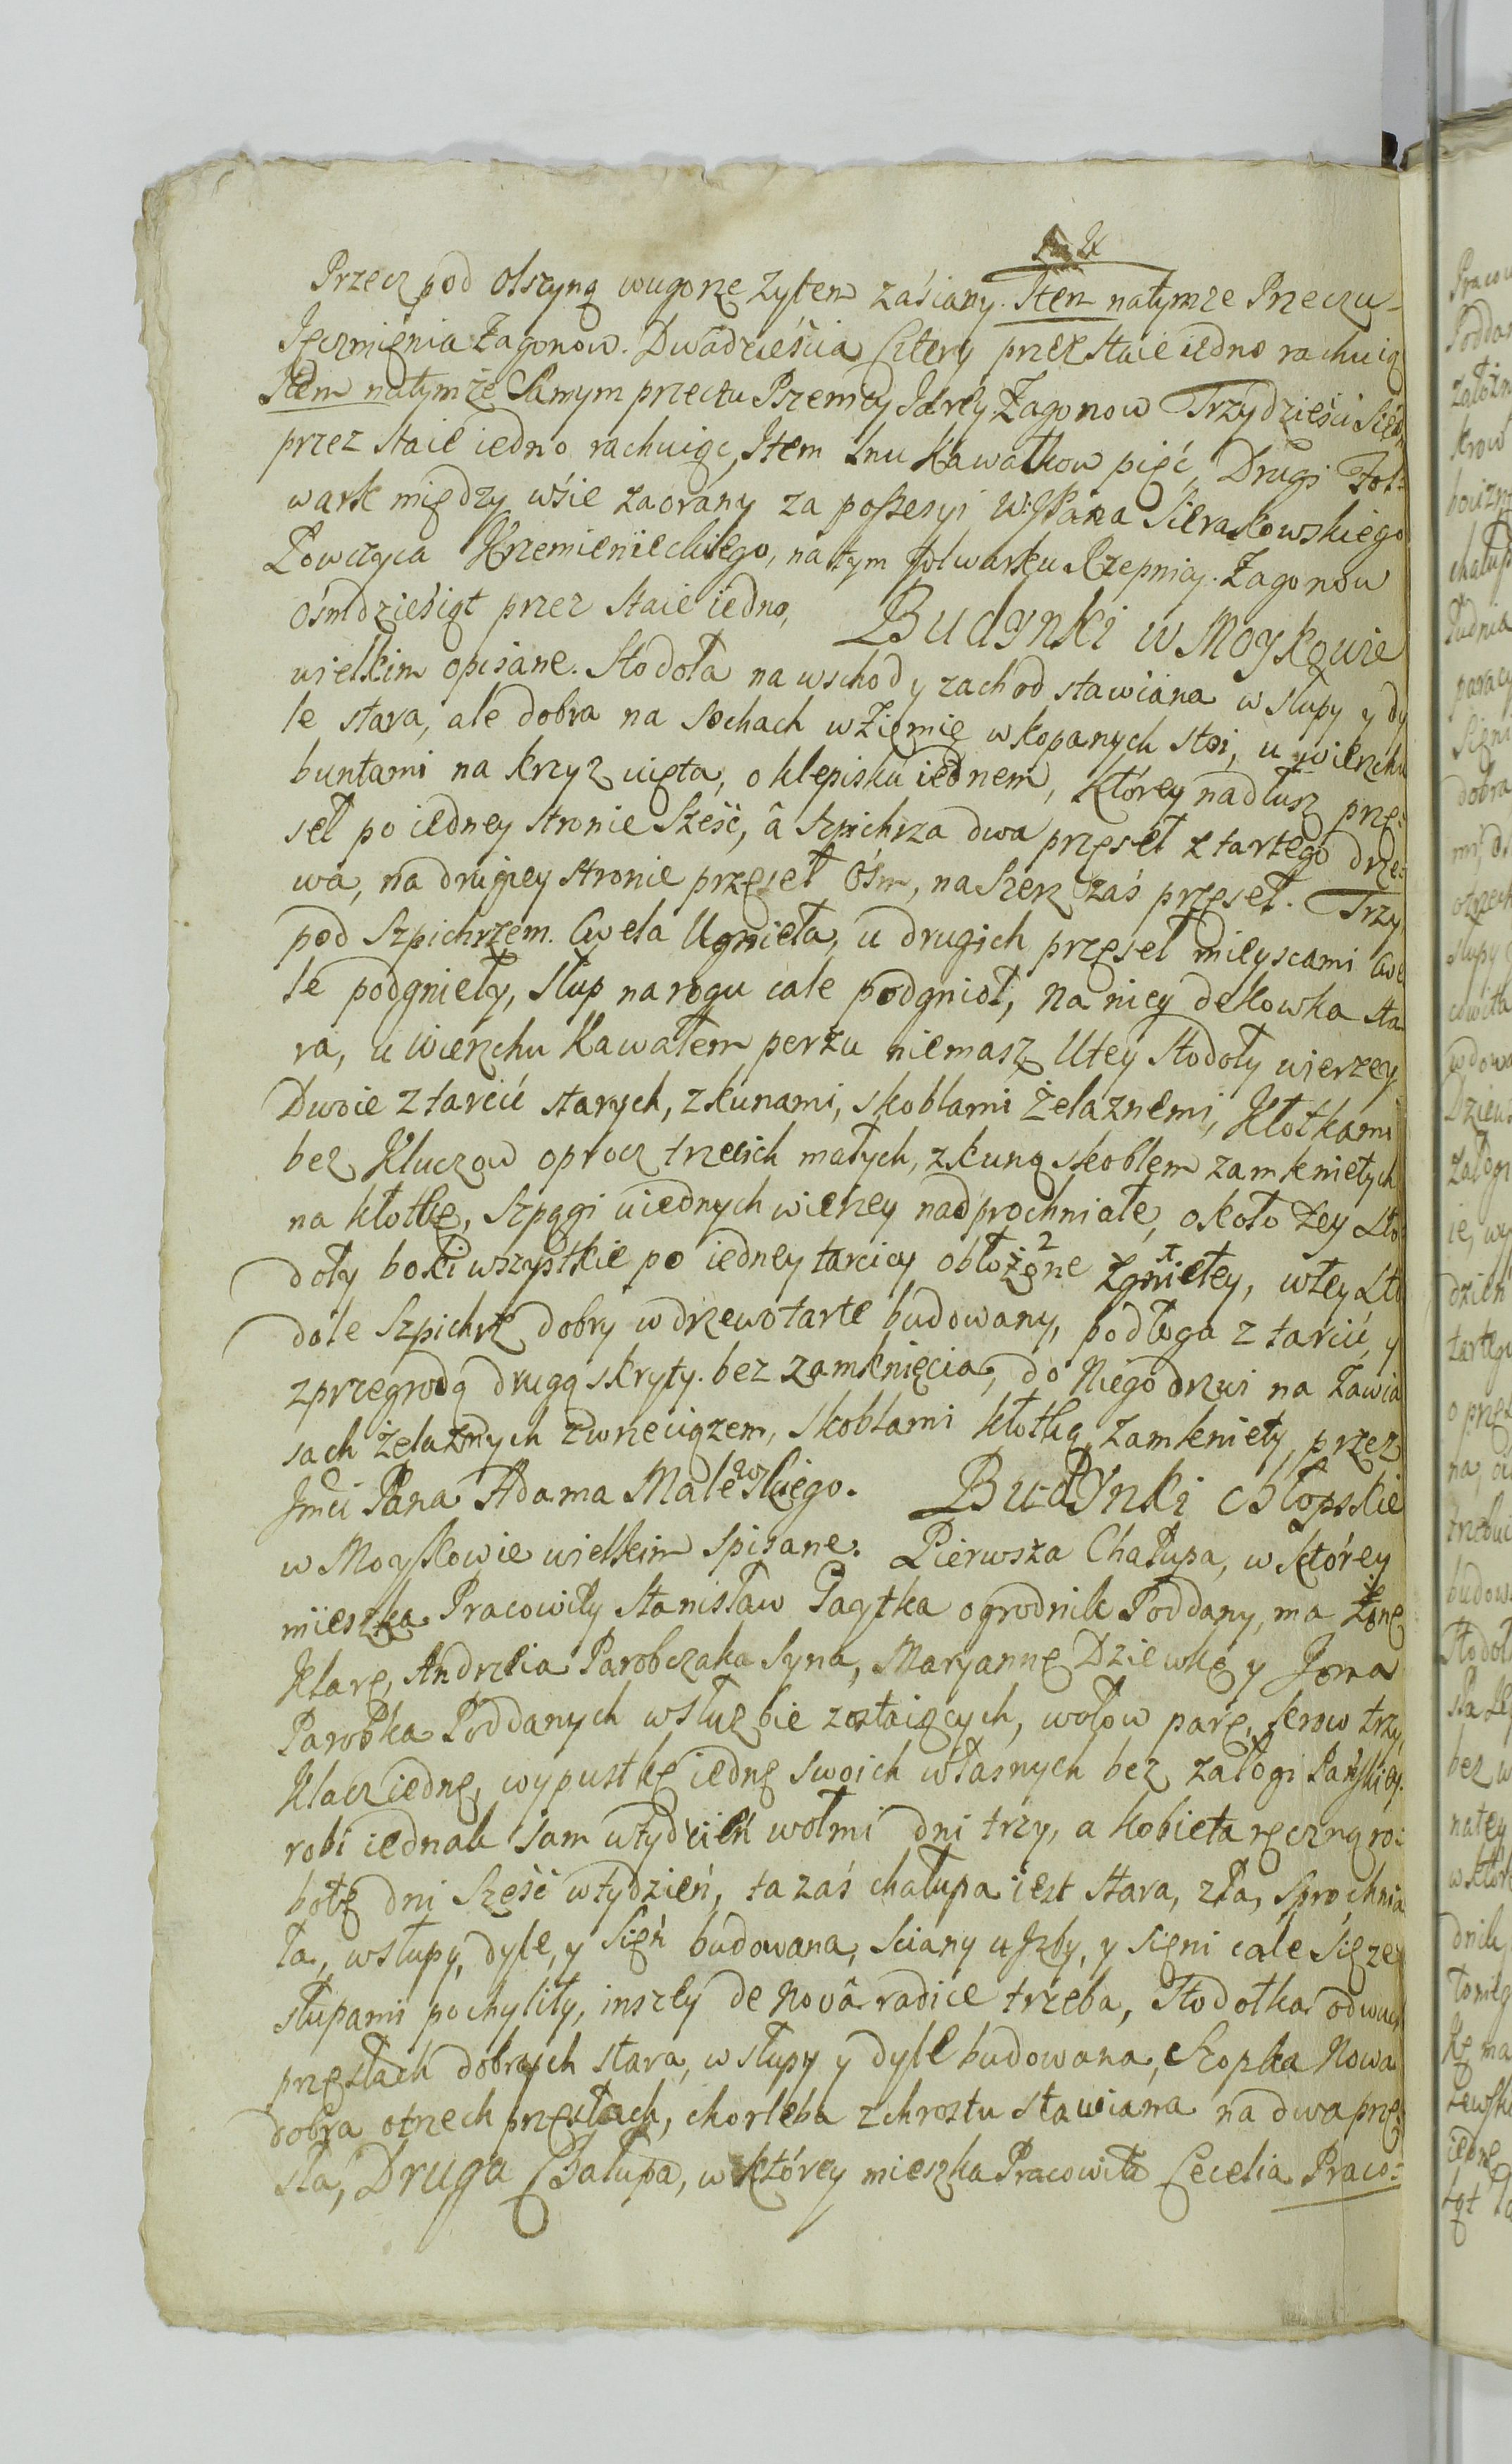 Przecz pod olszyną wugorze żytem zasiany. Item natymze Przeczu
Jęczmięnia Zagonow. Dwadzieścia Cztery przez staie iedno rachuią
Item natymże Samym przeczu Pszenicy Jarey Zagonow Trzydzieści Siedm
przez staie iedno rachuiąc, Item lnu Kawałkow pięć, Drugi Fol=
wark między wsie zaorany za possesyi W: JPana Sierakowskiego
Łowczyca Krzemienieckiego, natym folwarku Rzepniay. Zagonow
ośmdziesiąt przez staie iedno, Budynki w Moykowie
wielkim opisane. Stodoła na wschod y zachod stawiana w słupy y dy
le stara, ale dobra na sochach w Ziemię wkopanych stoi, u wierzchu
buntami na krzyż uięta, o klepisku iednem, którey nadłusz prze=
seł po iedney stronie Sześć, â Szpichrza dwa przęseł z tartego drze=
wa, na drugiey stronie przęseł Ośm, na Szerz zaś przęseł. Trzy
pod Szpichrzem. Cwela Ugnieła, u drugich przęseł mieyscami Cwe
le podgnieły, słup narogu cale podgnioł, na niey dekowka sta
ra, u Wierzchu Kawałem perzu niemasz, Utey Stodoły wierzey
Dwoie z tarcic starych, z kunami, skoblami żelaznemi, Kłotkami
bez Kluczow oprocz trzecich małych, z kuną skoblem zamknietych
na kłotkę, Szpągi uiednych wierzey nadprochniałe, około tey Sto
doły boki wszystkie po iedney tarcicy obłożone 2 zgniełey, 1 wtey Sto
dole Szpichrz dobry wdrzewo tarte budowany, podłoga z tarcic, y
zprzegrodą drugą skryty. bez zamknięcia, do Niego drzwi na Zawia
sach żelaznych zwrzeciązem, skoblami kłotką zamkniety przez
Jmći Pana Adama Malewskiego. Budynki chłopskie
w Moykowie wielkim Spisane. Pierwsza Chałupa, w którey
mieszka Pracowity Stanisław Pagytka ogrodnik Poddany, ma żonę
Klarę, Andrzeia Parobczaka Syna, Maryannę Dziewkę y Joma
Parobka Poddanych wsłużbie zostaiących, wołow parę, krow trzy,
Klacz iednę, wypustkę iednę swoich własnych bez załogi Pańskiey.
robi iednak sam wtydzień wołmi dni trzy, a kobieta ręczną ro=
botę dni Sześć wtydzień, ta zaś chałupa iest stara, zła, sprochnia
ła, wsłupy, dyle, y Sięń budowana, Sciany u Jzby, y sięni cale Się ze
słupami pochyliły, inszey de Novâ radice trzeba, Stodołka o dwuch
przęsłach dobrych stara, w słupy y dyle budowana, Szopka Nowa
dobra otrzech przęsłach, chorleba z chrostu stawiana na dwa prze=
sła, Druga Chałupa, w którey mieszka Pracowita Cecelia Praco=